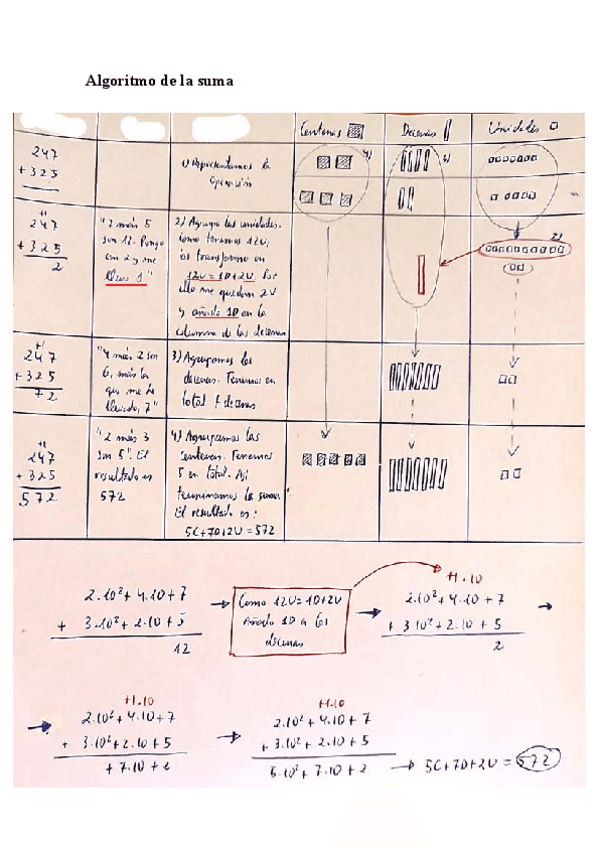 Algoritmo de la suma
Centenas
Decenas
Unidades
247
+ 325
1) Representamos la
operación
4)
3)
+1
247
+ 325
2
"7 más 5
son 12. Pongo
un 2 y me
llevo 1"
2) Agrupo las unidades.
Como tenemos 12U,
las transformo en
12U = 1D+2U. Por
ello me quedan 2U
y añado 1D en la
columna de las decenas
2)
+1
247
+ 325
72
"4 más 2 son
6, más la
que me he
llevado, 7"
3) Agrupamos las
decenas. Tenemos en
total 7 decenas
+1
247
+ 325
572
"2 más 3
son 5". El
resultado es
572
4) Agrupamos las
centenas. Tenemos
5 en total. Así
terminamos la suma.
El resultado es:
5C+7D+2U = 572
2·10²+4·10+7
+ 3·10²+2·10+5
12
Como 12U=1D+2U
Añado 1D a las
decenas
+1·10
2·10²+4·10+7
+ 3·10²+2·10+5
2
+1·10
2·10²+4·10+7
+ 3·10²+2·10+5
+7·10+2
+1·10
2·10²+4·10+7
+ 3·10²+2·10+5
5·10²+7·10+2
5C+7D+2U = 572